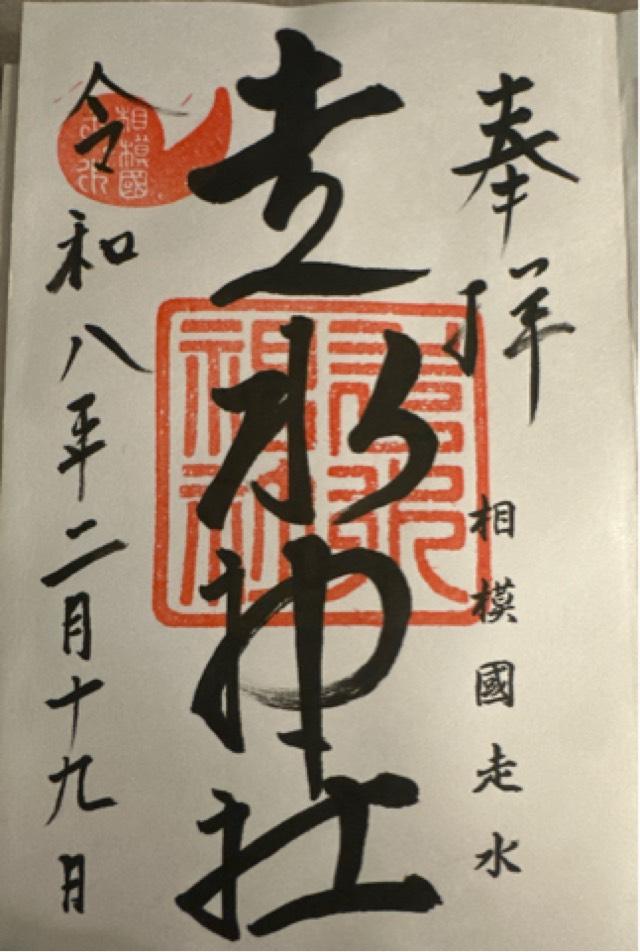 奉拝
相模國走水
走水神社
走水神社
令和八年二月十九日
相模國
走水